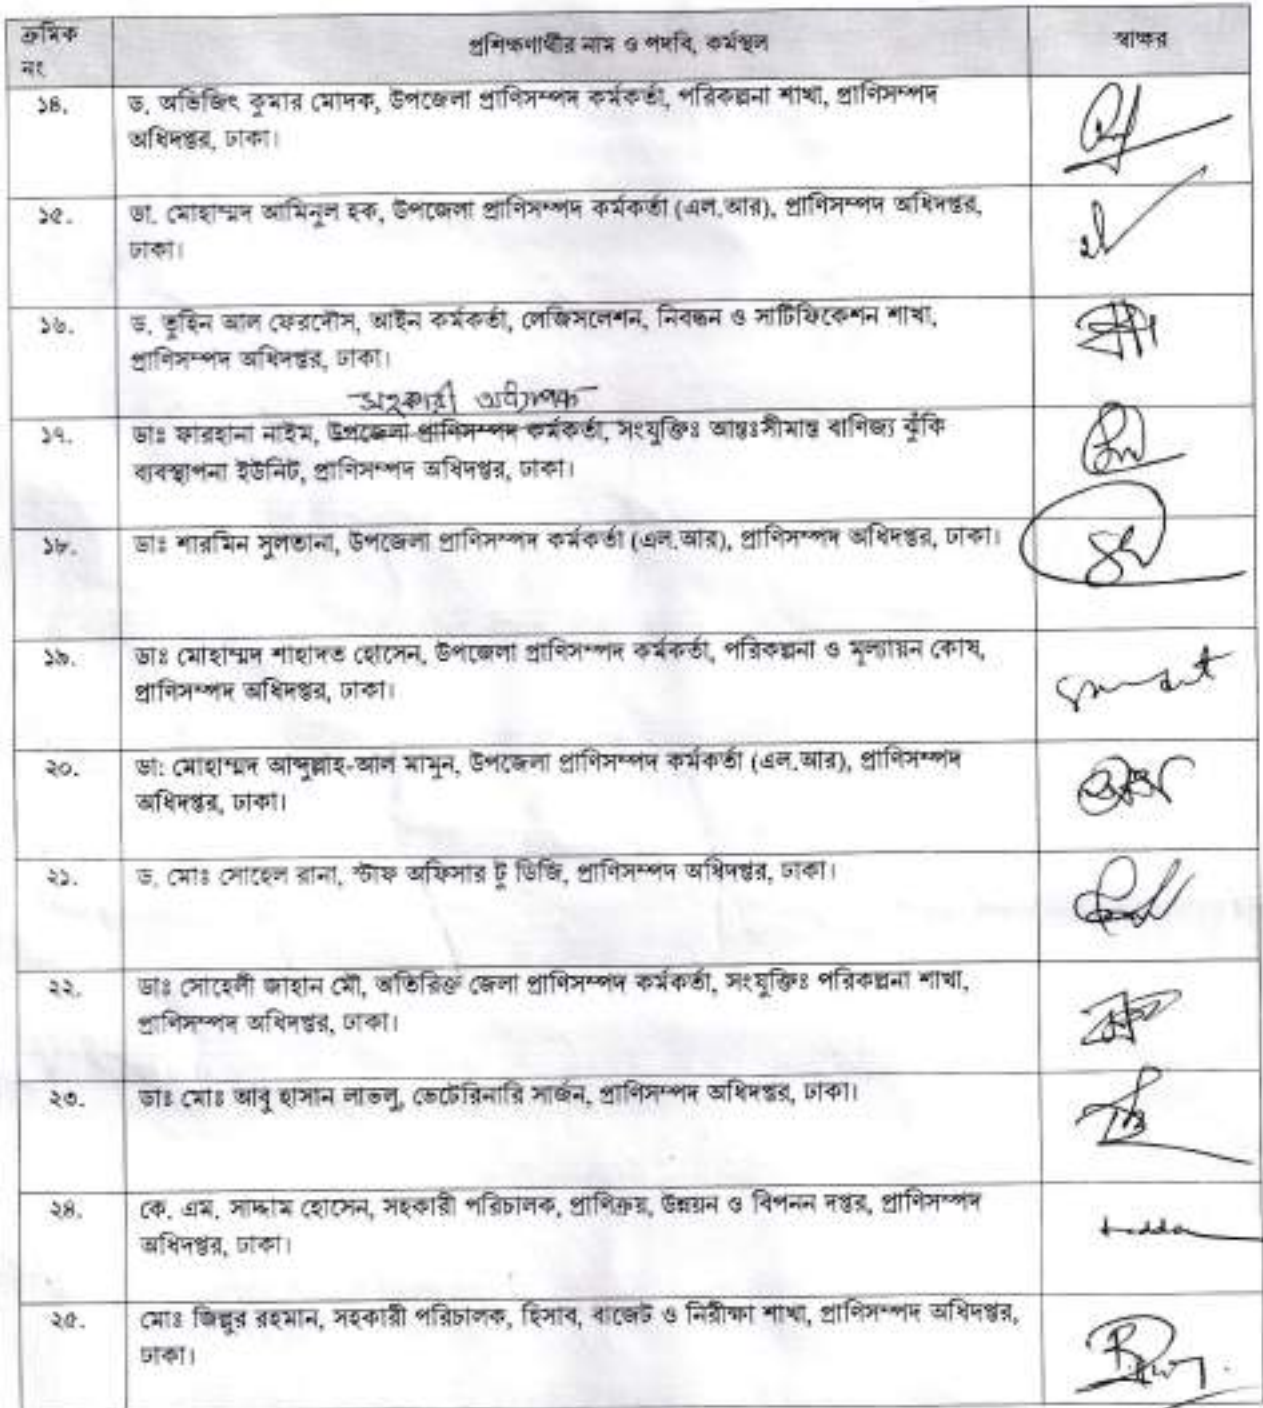 ক্রমিক নং প্রশিক্ষণার্থীর নাম ও পদবি, কর্মস্থল স্বাক্ষর
১৪. ড. অভিজিৎ কুমার মোদক, উপজেলা প্রাণিসম্পদ কর্মকর্তা, পরিকল্পনা শাখা, প্রাণিসম্পদ
অধিদপ্তর, ঢাকা।
১৫. ডা. মোহাম্মদ আমিনুল হক, উপজেলা প্রাণিসম্পদ কর্মকর্তা (এল.আর), প্রাণিসম্পদ অধিদপ্তর,
ঢাকা।
১৬. ড. তুহিন আল ফেরদৌস, আইন কর্মকর্তা, লেজিসলেশন, নিবন্ধন ও সার্টিফিকেশন শাখা,
প্রাণিসম্পদ অধিদপ্তর, ঢাকা।
সহকারী অধ্যাপক
১৭. ডাঃ ফারহানা নাইম, উপজেলা প্রাণিসম্পদ কর্মকর্তা, সংযুক্তিঃ আন্তঃসীমান্ত বাণিজ্য ঝুঁকি
ব্যবস্থাপনা ইউনিট, প্রাণিসম্পদ অধিদপ্তর, ঢাকা।
১৮. ডাঃ শারমিন সুলতানা, উপজেলা প্রাণিসম্পদ কর্মকর্তা (এল.আর), প্রাণিসম্পদ অধিদপ্তর, ঢাকা।
১৯. ডাঃ মোহাম্মদ শাহাদত হোসেন, উপজেলা প্রাণিসম্পদ কর্মকর্তা, পরিকল্পনা ও মূল্যায়ন কোষ,
প্রাণিসম্পদ অধিদপ্তর, ঢাকা।
২০. ডা: মোহাম্মদ আব্দুল্লাহ-আল মামুন, উপজেলা প্রাণিসম্পদ কর্মকর্তা (এল.আর), প্রাণিসম্পদ
অধিদপ্তর, ঢাকা।
২১. ড. মোঃ সোহেল রানা, স্টাফ অফিসার টু ডিজি, প্রাণিসম্পদ অধিদপ্তর, ঢাকা।
২২. ডাঃ সোহেলী জাহান মৌ, অতিরিক্ত জেলা প্রাণিসম্পদ কর্মকর্তা, সংযুক্তিঃ পরিকল্পনা শাখা,
প্রাণিসম্পদ অধিদপ্তর, ঢাকা।
২৩. ডাঃ মোঃ আবু হাসান লাভলু, ভেটেরিনারি সার্জন, প্রাণিসম্পদ অধিদপ্তর, ঢাকা।
২৪. কে. এম. সাদ্দাম হোসেন, সহকারী পরিচালক, প্রাণিক্রয়, উন্নয়ন ও বিপনন দপ্তর, প্রাণিসম্পদ
অধিদপ্তর, ঢাকা।
২৫. মোঃ জিল্লুর রহমান, সহকারী পরিচালক, হিসাব, বাজেট ও নিরীক্ষা শাখা, প্রাণিসম্পদ অধিদপ্তর,
ঢাকা।